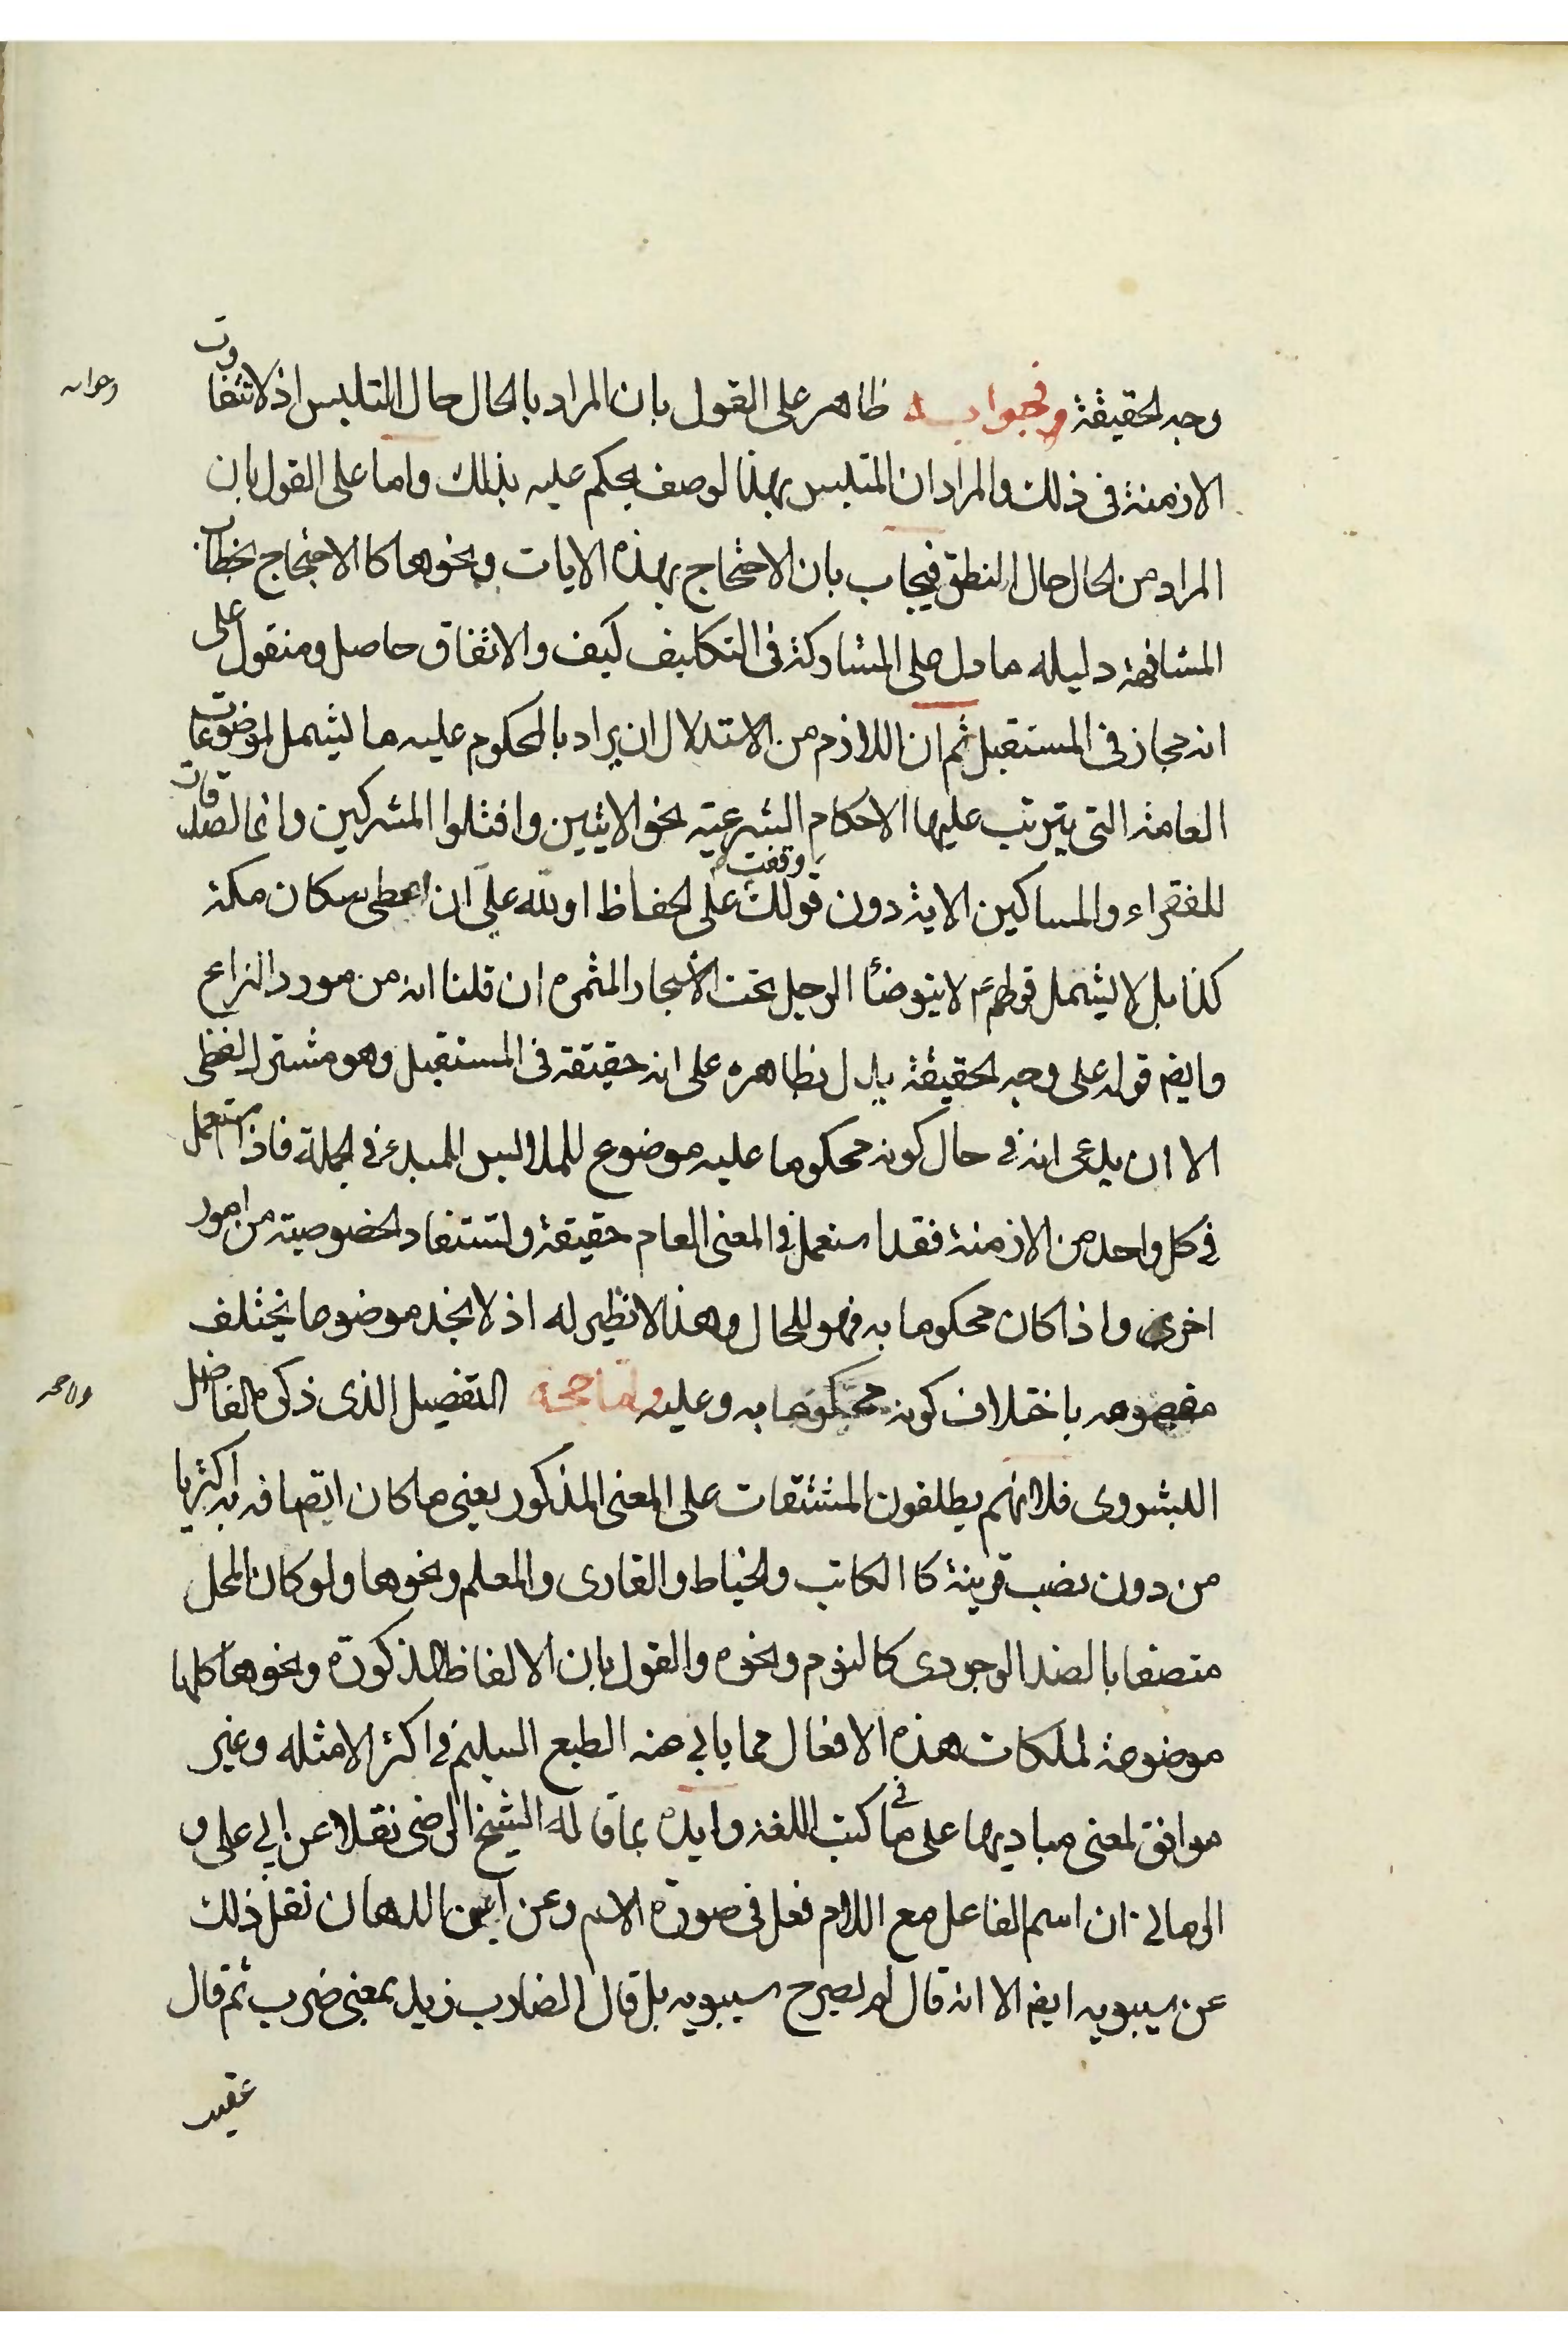 وجه الحقيقة والجواب ظاهر على القول بان المراد بالحال حال التلبس اذ لا تتفاوت
الازمنة فى ذلك والمراد ان المتلبس بهذا الوصف يحكم عليه بذلك واما على القول بان
المراد من الحال حال النطق فيجاب بان الاحتجاج بهذه الايات ونحوها كالاحتجاج بخطاب
المشافهة دليله ما دل على المشاركة فى التكاليف كيف والاتفاق حاصل ومنقول على
انه مجاز فى المستقبل ثم ان اللازم من الاستدلال ان يراد بالمحكوم عليه ما يشمل لموضوعات
العامة التى يترتب عليها الاحكام الشرعية نحو الايتين واقتلوا المشركين وانما الصدقات
للفقراء والمساكين الاية دون قولك وقفت على الحفاظ او لله علىّ ان اعطى سكان مكة
كذا بل لا يشمل قولهم لا يتوضأ الرجل تحت الاشجار المثمره ان قلنا انه من مورد النزاع
وايضم قوله على وجه الحقيقة يدل بظاهره على انه حقيقة فى المستقبل وهو مشترك لفظى
الا ان يدعى انه فى حال كونه محكوما عليه موضوع للملابس للمبدء فى الجملة فاذا استعمل
فى كل واحد من الازمنة فقد استعمل فى المعنى العام حقيقة وتستفاد الخصوصية من امور
اخرى واذا كان محكوما به فهو للحال وهذا لا نظير له اذ لا نجد موضوعا يختلف
باختلاف كونه محكوما به وعليه واما حجة التفصيل الذى ذكره الفاضل
التشروى فلانهم يطلقون المشتقات على المعنى المذكور يعنى ما كان اتصافه به اكثريا
من دون نصب قرينة كالكاتب والخياط والقارى والمعلم ونحوها ولو كان المحل
متصفا بالضد الوجودى كالنوم ونحوه والقول بان الالفاظ المذكورة ونحوها كلها
موضوعة لملكات هذه الافعال مما يابى عنه الطبع السليم فى اكثر الامثله وغير
موافق لمعنى مباديها على ما فى كتب اللغة وايده بما قاله الشيخ الرضى نقلا عن ابى على و
الرمانى ان اسم الفاعل مع اللام فعل فى صورة الاسم وعن ابن الدهان نقل ذلك
عن سيبويه ايضم الا انه قال لم يصرح سيبويه بل قال الضارب زيد بمعنى ضرب ثم قال